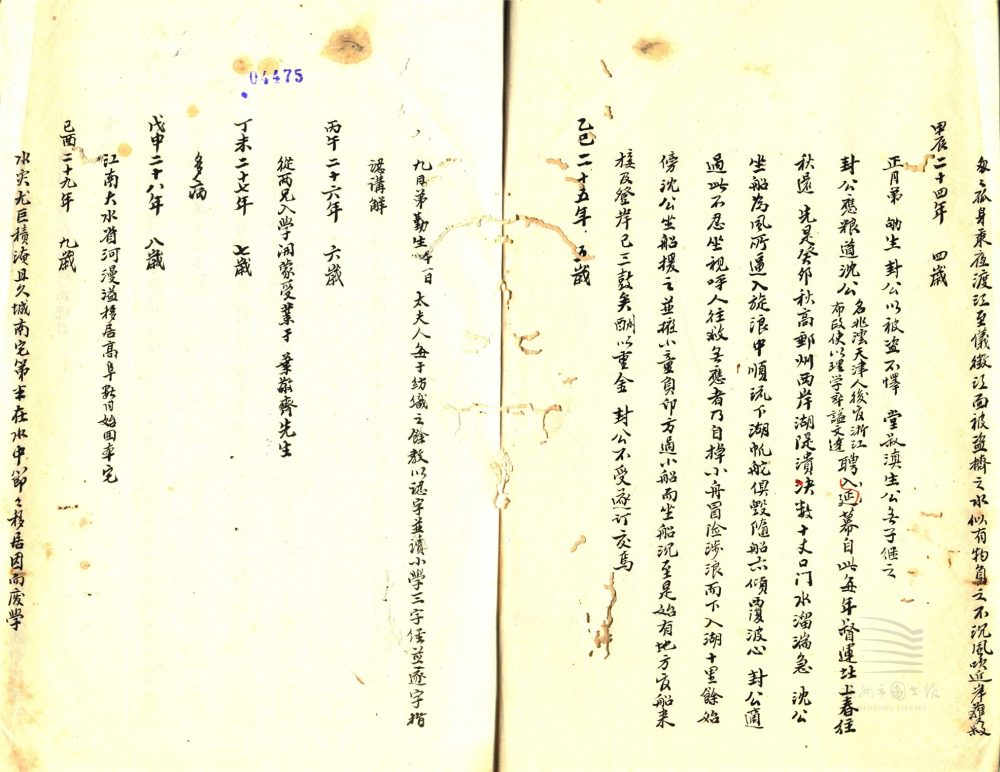 友之孤身乘夜渡江至儀徵江面被盜擠之水似有物負之不沉風吹近岸
甲辰二十四年　四歲
正月弟勄生　封公以被盜不懌　堂叔滇生公無子繼之
封公應糧道沈公名兆澐天津人後官浙江布政使以理學聞謚文達聘入延幕自此每年督運北上春往
秋還　先是癸卯秋高郵州西岸湖隄潰決數十丈口門水溜湍急　沈公
坐船為風所逼入旋浪中順流下湖帆舵俱毀隨船亦傾覆波心　封公適
過此不忍坐視呼人往救無應者乃自掉小舟冒險涉浪而下入湖十里餘始
傍沈公坐船援之並攜小童負印方過小船而坐船沉至是始有地方官船來
接及登岸已三鼓矣酬以重金　封公不受遂訂交焉
乙巳二十五年　五歲
九月弟勤生　太夫人每于紡織之餘教以認字並讀小學三字經並逐字指
認講解
丙午二十六年　六歲
從兩兄入學開蒙受業于　葉　齊先生
丁未二十七年　七歲
多病
戊申二十八年　八歲
江南大水省河漫溢移居高阜數月始回本宅
己酉二十九年　九歲
水災尤巨積淹且久城南宅第半在水中節節移居因而廢學
04475
溫州市图书馆
WENZHOU LIBRARY